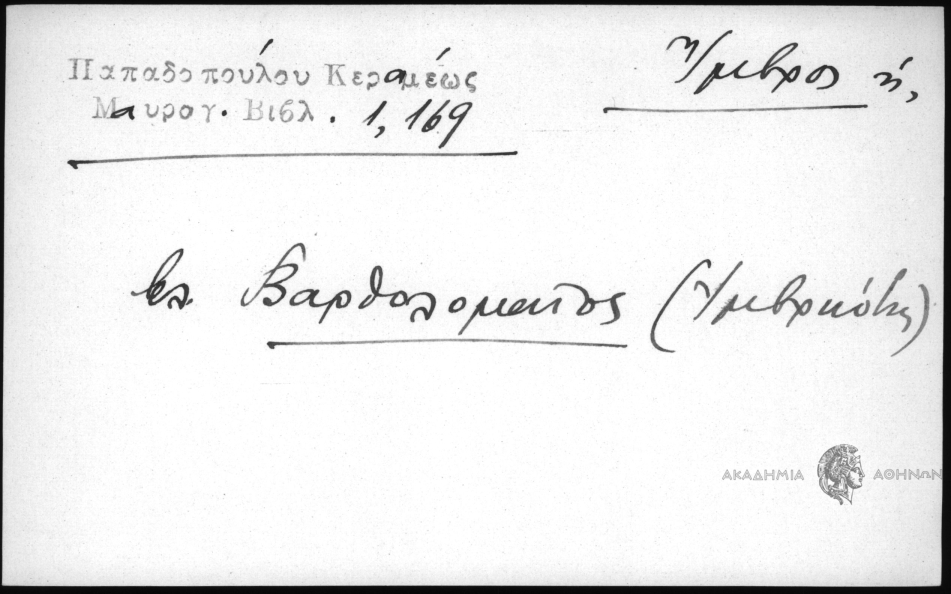 Παπαδοπούλου Κεραμέως
Μαυρογ. Βιβλ. 1, 169
Ἴμβρος ἡ,
βλ. Βαρθολομαῖος (Ἰμβριώτης)
ΑΚΑΔΗΜΙΑ ΑΘΗΝΩΝ